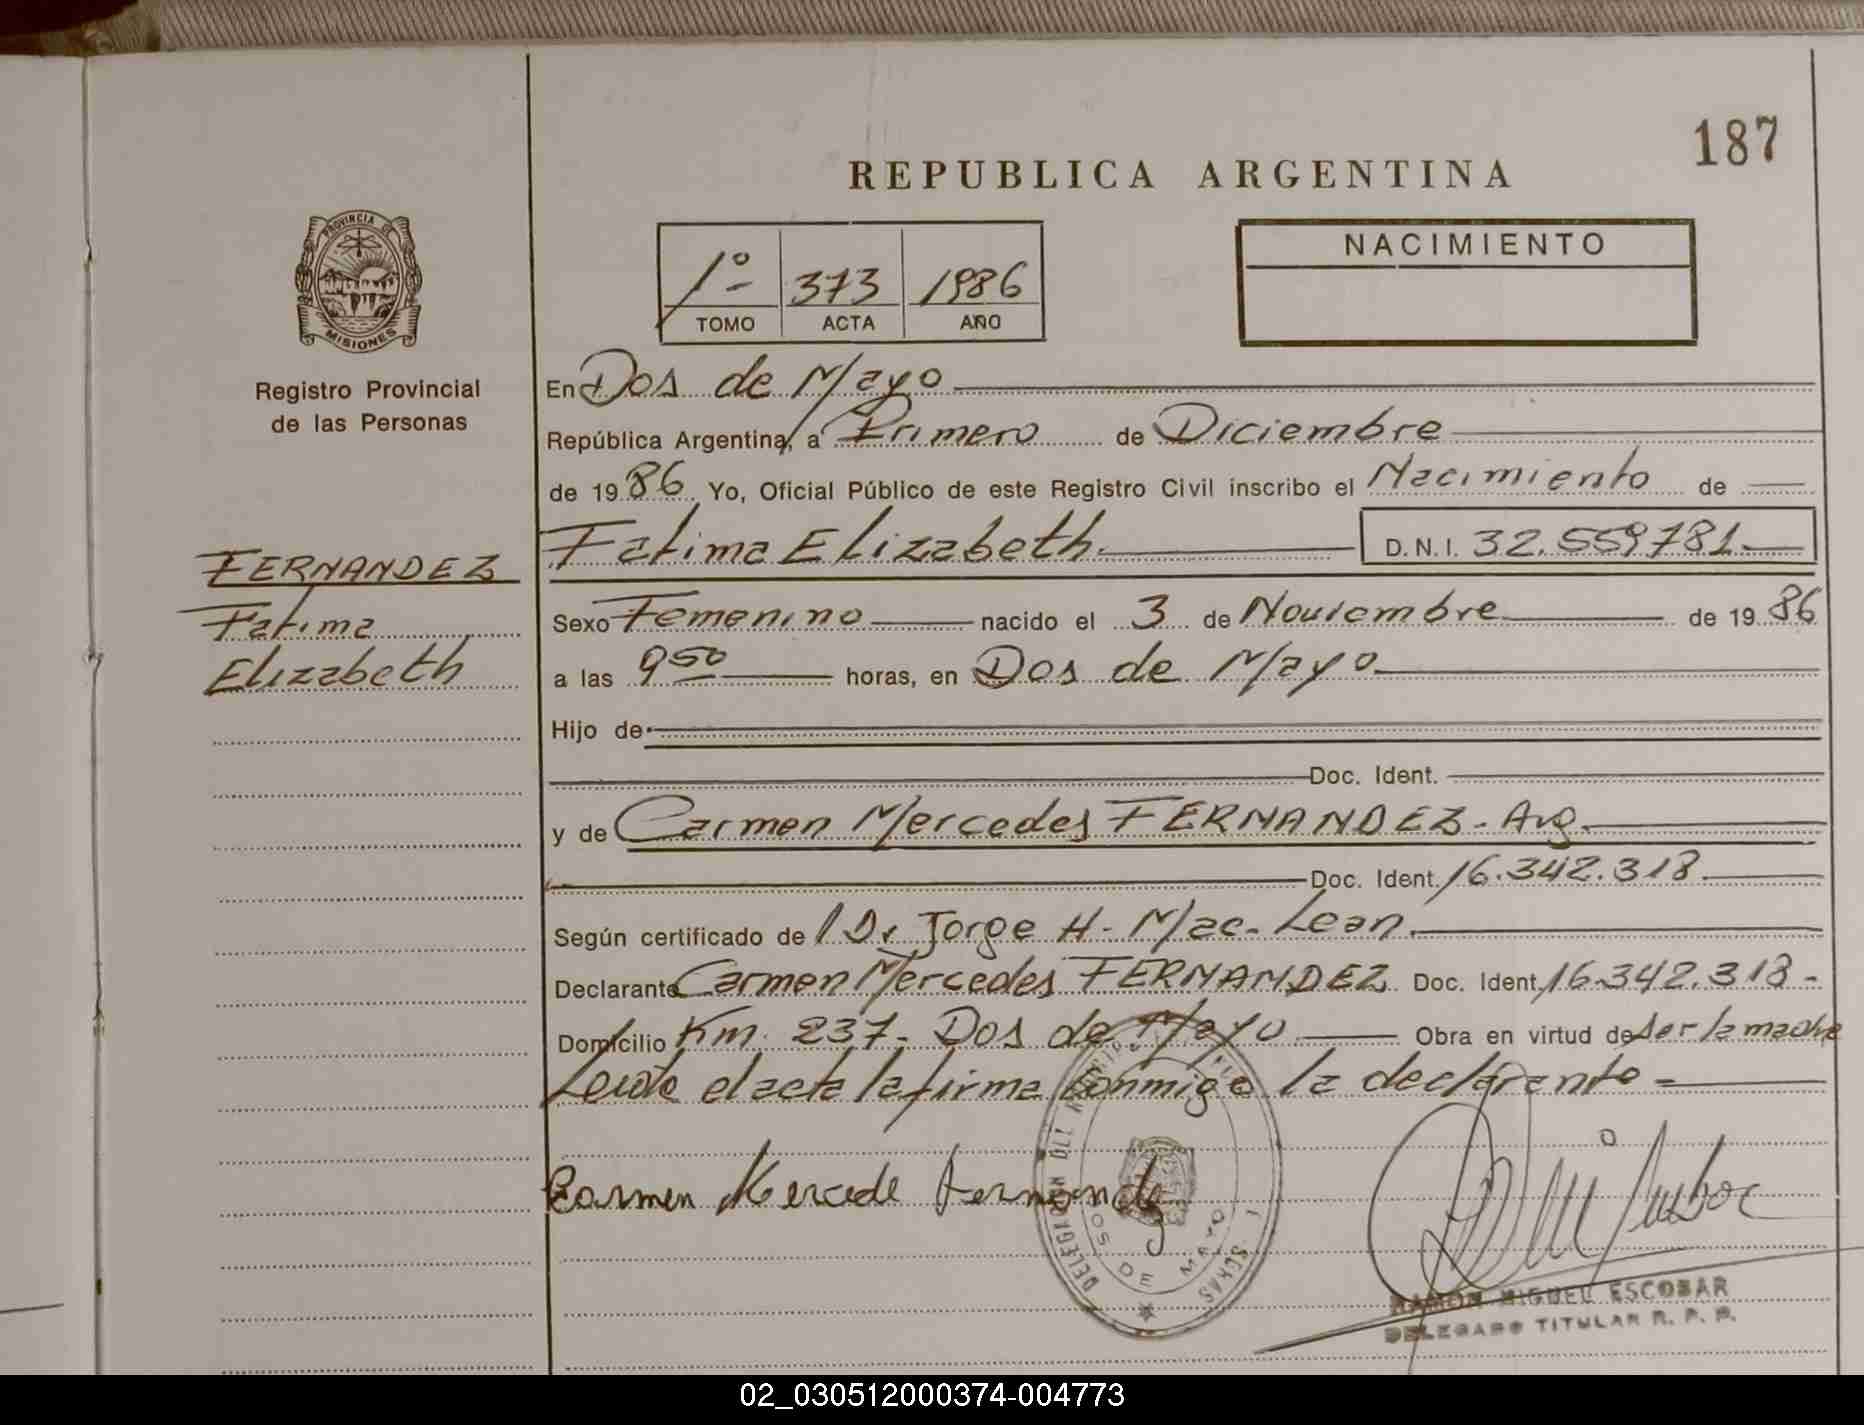 187
REPUBLICA ARGENTINA
PROVINCIA DE
MISIONES
Registro Provincial
de las Personas
1º- 373 1986
TOMO ACTA AÑO
NACIMIENTO
En Dos de Mayo
República Argentina, a Primero de Diciembre
de 1986. Yo, Oficial Público de este Registro Civil inscribo el Nacimiento de
Fatima Elizabeth. D.N.I. 32.559781.
FERNANDEZ
Fatima
Elizabeth
Sexo Femenino nacido el 3 de Noviembre de 1986
a las 9 50 horas, en Dos de Mayo
Hijo de
Doc. Ident.
y de Carmen Mercedes FERNANDEZ - Arg.
Doc. Ident. 16.342.318
Según certificado de Dr. Jorge H. Mac. Lean.
Declarante Carmen Mercedes FERNANDEZ Doc. Ident. 16.342.318-
Domicilio Km. 237- Dos de Mayo Obra en virtud de ser la madre
Leida el acta la firma conmigo la declarante
Carmen Mercede Fernandez
DOS DE MAYO
RAMON MIGUEL ESCOBAR
DELEGADO TITULAR R. P. P.
02_030512000374-004773